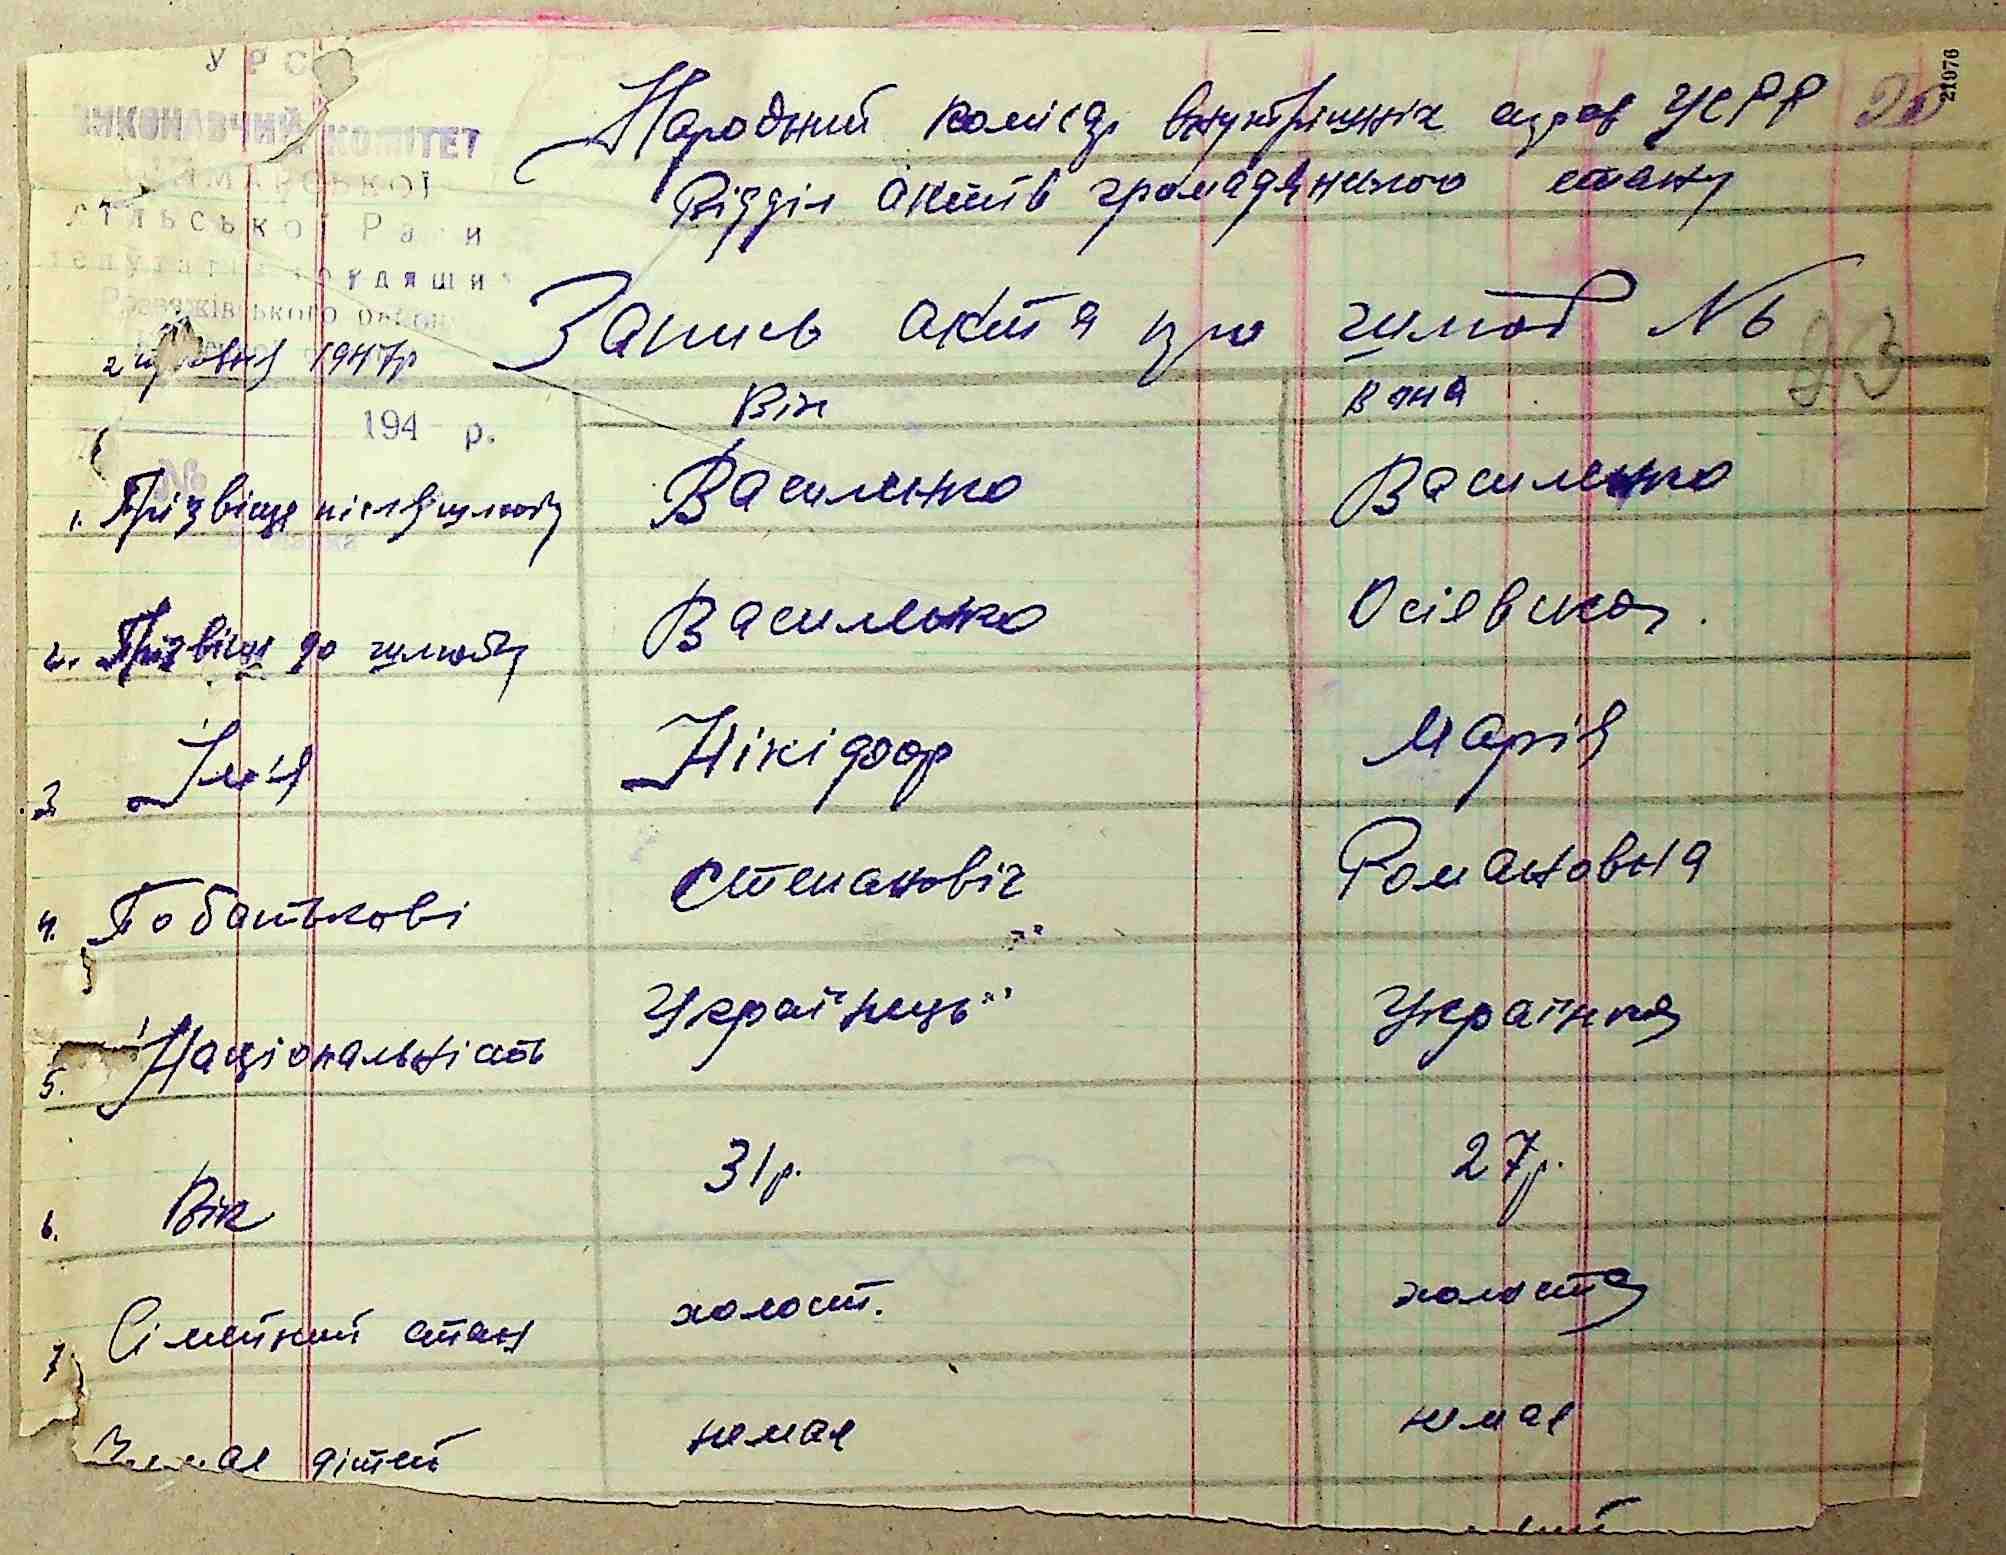 УРС
ВИКОНАВЧИЙ КОМІТЕТ
сільської Ради
депутатів трудящих
1947р
194 р.
№
21976
Народний комісар внутрішніх справ УСРР
Відділ актів громадянського стану
Запись акта про шлюб № 6
23
Він Вона
1. Прізвіще після шлюбу Василенко Василенко
2. Прізвіще до шлюбу Василенко Осієвска
3 Імья Нікіфор Марія
4. Побатькові Степановіч Романовна
5. Національність Українець Українка
6. Вік 31р. 27р.
7 Сімейний стан холост. холоста
дітей немає немає